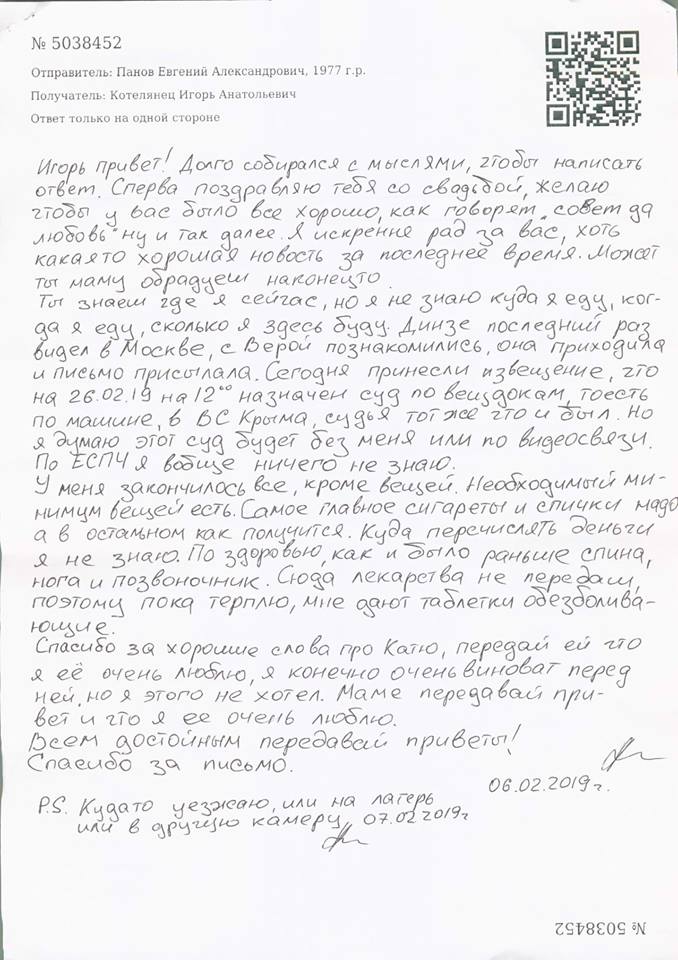 № 5038452
Отправитель: Панов Евгений Александрович, 1977 г.р.
Получатель: Котелянец Игорь Анатольевич
Ответ только на одной стороне
Игорь привет! Долго собирался с мыслями, чтобы написать
ответ. Сперва поздравляю тебя со свадьбой, желаю
чтобы у вас было все хорошо, как говорят „совет да
любовь" ну и так далее. Я искренне рад за вас, хоть
какаято хорошая новость за последнее время. Может
ты маму обрадуеш наконецто.
Ты знаеш где я сейчас, но я не знаю куда я еду, ког-
да я еду, сколько я здесь буду. Динзе последний раз
видел в Москве, с Верой познакомились, она приходила
и письмо присылала. Сегодня принесли извещение, что
на 26.02.19 на 12⁰⁰ назначен суд по вещдокам, тоесть
по машине, в ВС Крыма, судья тот же что и был. Но
я думаю этот суд будет без меня или по видеосвязи.
По ЕСПЧ я вобще ничего не знаю.
У меня закончилось все, кроме вещей. Необходимый ми-
нимум вещей есть. Самое главное сигареты и спички надо
а в остамном как получится. Куда перечислять деньги
я не знаю. По здоровью, как и было раньше спина,
нога и позвоночник. Сюда лекарства не передаш,
поэтому пока терплю, мне дают таблетки обезболива-
ющие.
Спасибо за хорошие слова про Катю, передай ей что
я её очень люблю, я конечно очень виноват перед
ней, но я этого не хотел. Маме передавай при-
вет и что я ее очень люблю.
Всем достойным передавай приветы!
Спасибо за письмо.
06.02.2019г.
P.S. Кудато уезжаю, или на лагерь
или в другую камеру, 07.02.2019г
№ 5038452